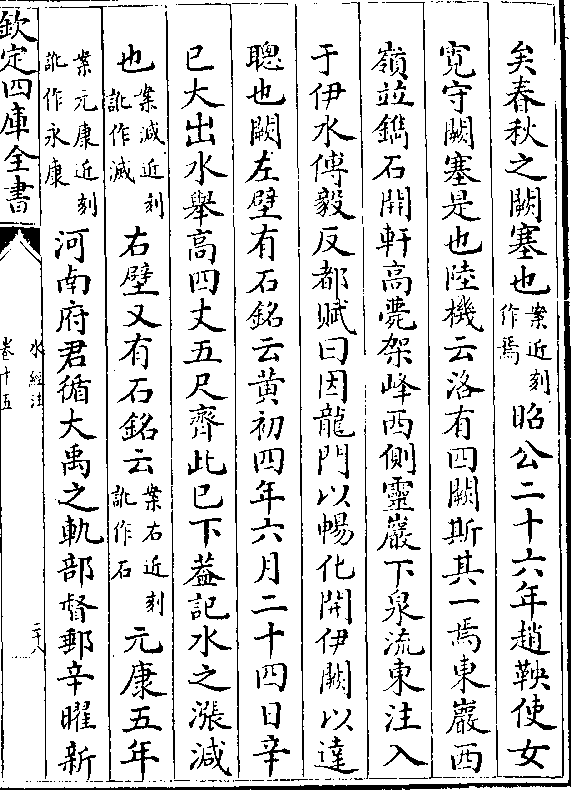 矣春秋之闕塞也案近刻作焉昭公二十六年趙鞅使女
寛守闕塞是也陸機云洛有四闕斯其一焉東巖西
嶺並鐫石開軒高甍架峰西側靈巖下泉流東注入
于伊水傅毅反都賦曰因龍門以暢化開伊闕以達
聰也闕左壁有石銘云黃初四年六月二十四日辛
巳大出水舉高四丈五尺齊此已下葢記水之漲減
也案減近刻訛作滅右壁又有石銘云案右近刻訛作石元康五年
案元康近刻訛作永康河南府君循大禹之軌部督郵辛曜新
欽定四庫全書
水經注
卷十五
二十八